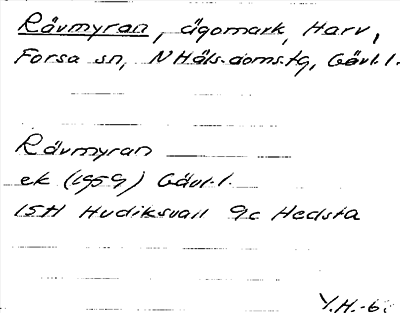 Rävmyran, ägomark, Harv,
Forsa sn, NHäls.domstg, Gävl.l.
Rävmyran
ek (1959) Gävl.l.
15H Hudiksvall 9c Hedsta
Y.H.-6